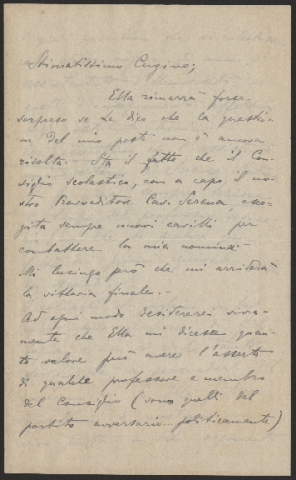 Stimatissimo Cugino;
Ella rimarrà forse
sorpreso se Le dico che la questio=
ne del mio posto non è ancora
risolta. Sta il fatto che il Con=
siglio scolastico, con a capo il no=
stro Provveditore Cav. Serena, esco=
gita sempre nuovi cavilli per
combattere la mia nomina.
Mi lusingo però che mi arriderà
la vittoria finale.-
Ad ogni modo desidererei viva=
mente che Ella mi dicesse quan=
to valore può avere l'asserto
di qualche professore e membro
del Consiglio (sono quelli del
partito avversario... politicamente)